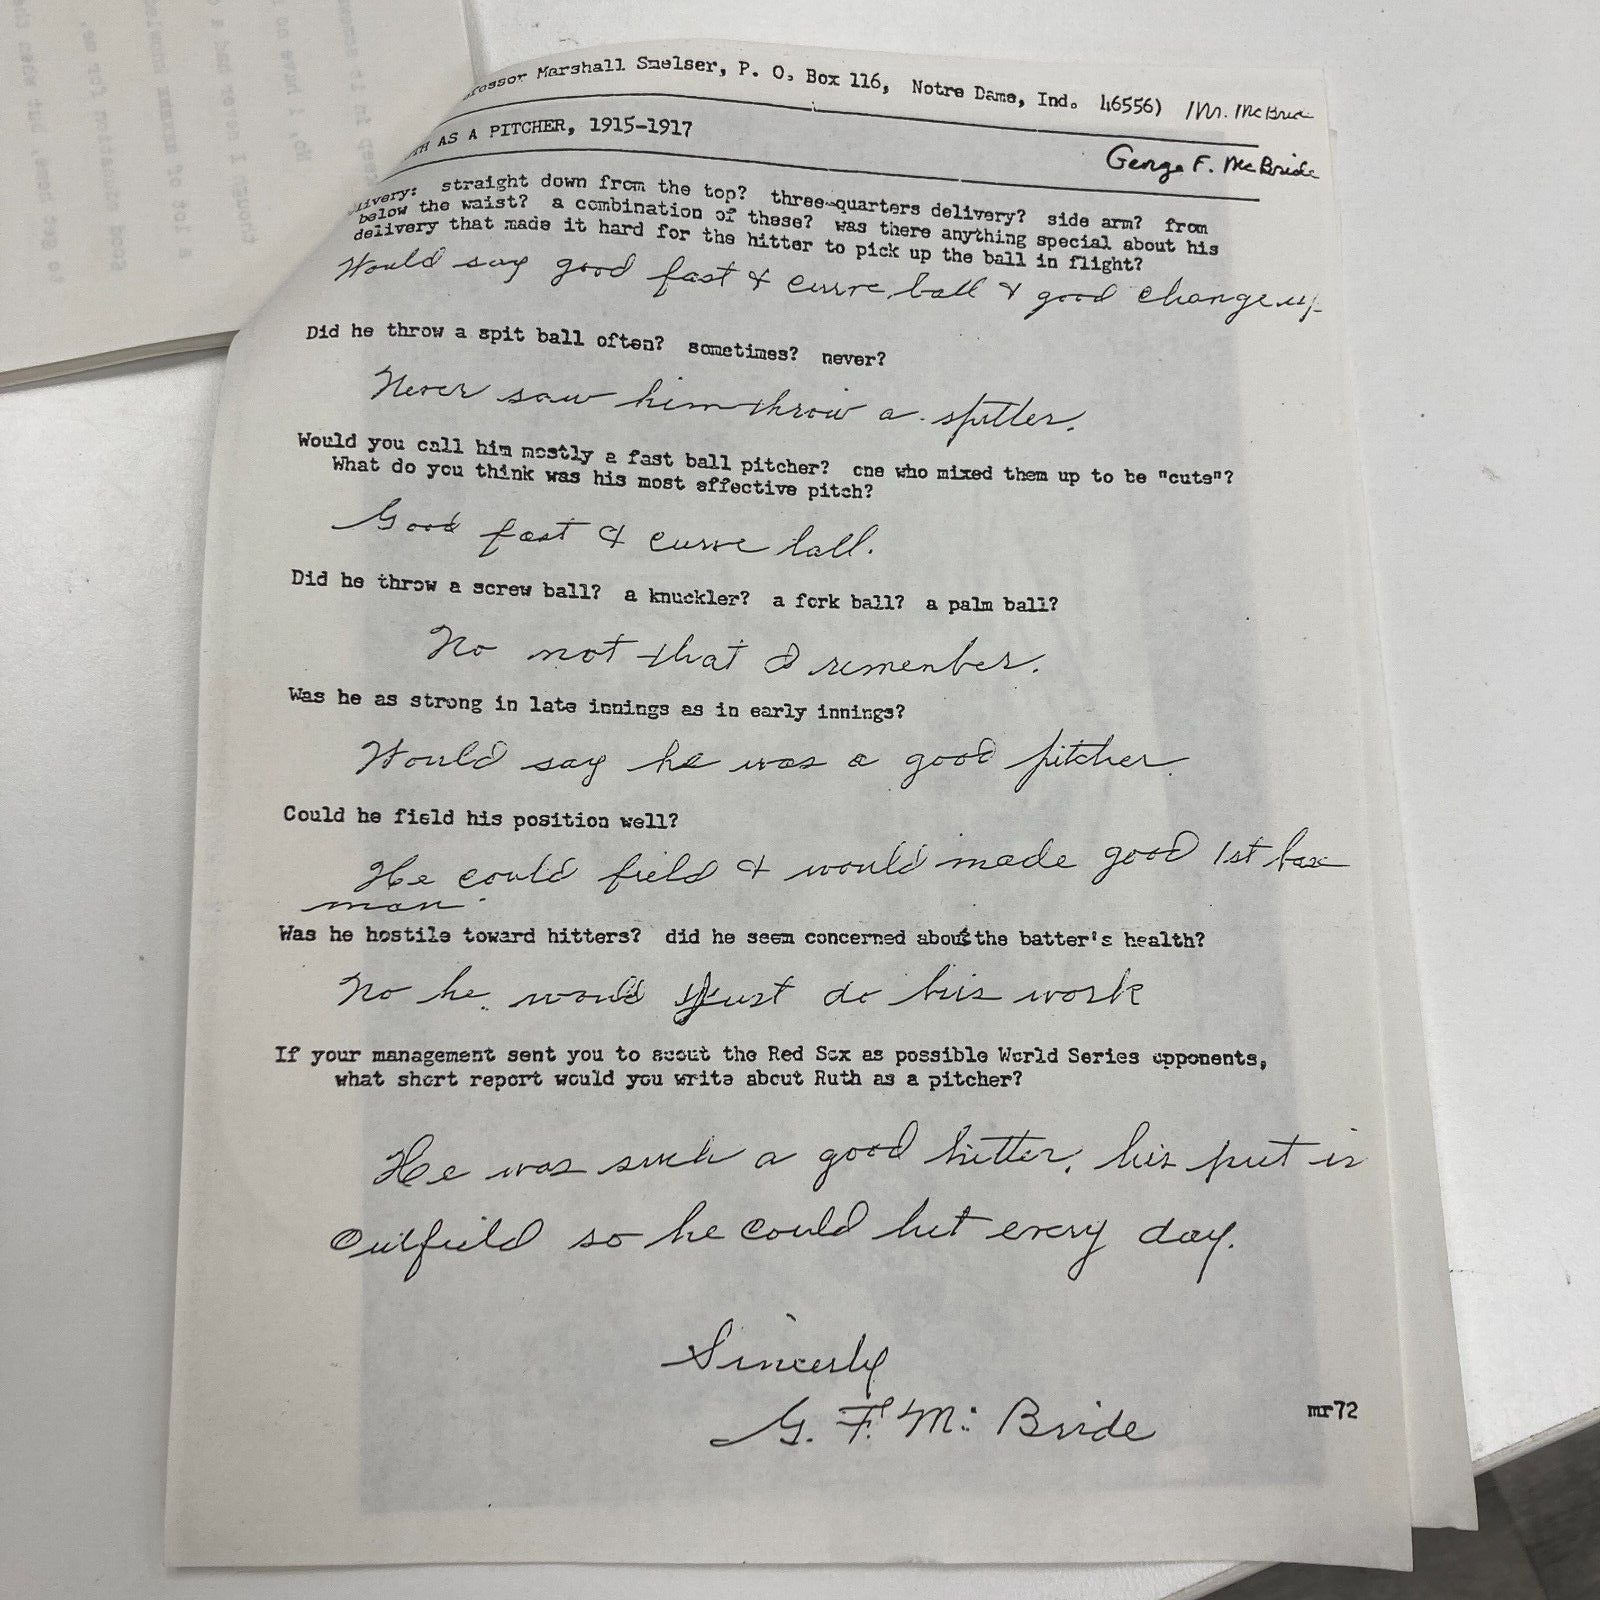 Professor Marshall Smelser, P. O. Box 116, Notre Dame, Ind. 46556) Mr. McBride
RUTH AS A PITCHER, 1915-1917
George F. McBride
Delivery: straight down from the top? three-quarters delivery? side arm? from
below the waist? a combination of these? was there anything special about his
delivery that made it hard for the hitter to pick up the ball in flight?
Would say good fast & curve ball & good change up
Did he throw a spit ball often? sometimes? never?
Never saw him throw a spitter.
Would you call him mostly a fast ball pitcher? one who mixed them up to be "cute"?
What do you think was his most effective pitch?
Good fast & curve ball.
Did he throw a screw ball? a knuckler? a fork ball? a palm ball?
No not that I remember.
Was he as strong in late innings as in early innings?
Would say he was a good pitcher.
Could he field his position well?
He could field & would made good 1st base
man.
Was he hostile toward hitters? did he seem concerned about the batter's health?
No he would just do his work
If your management sent you to scout the Red Sox as possible World Series opponents,
what short report would you write about Ruth as a pitcher?
He was such a good hitter, his put in
Outfield so he could hit every day.
Sincerly
G. F. Mc Bride
mr72